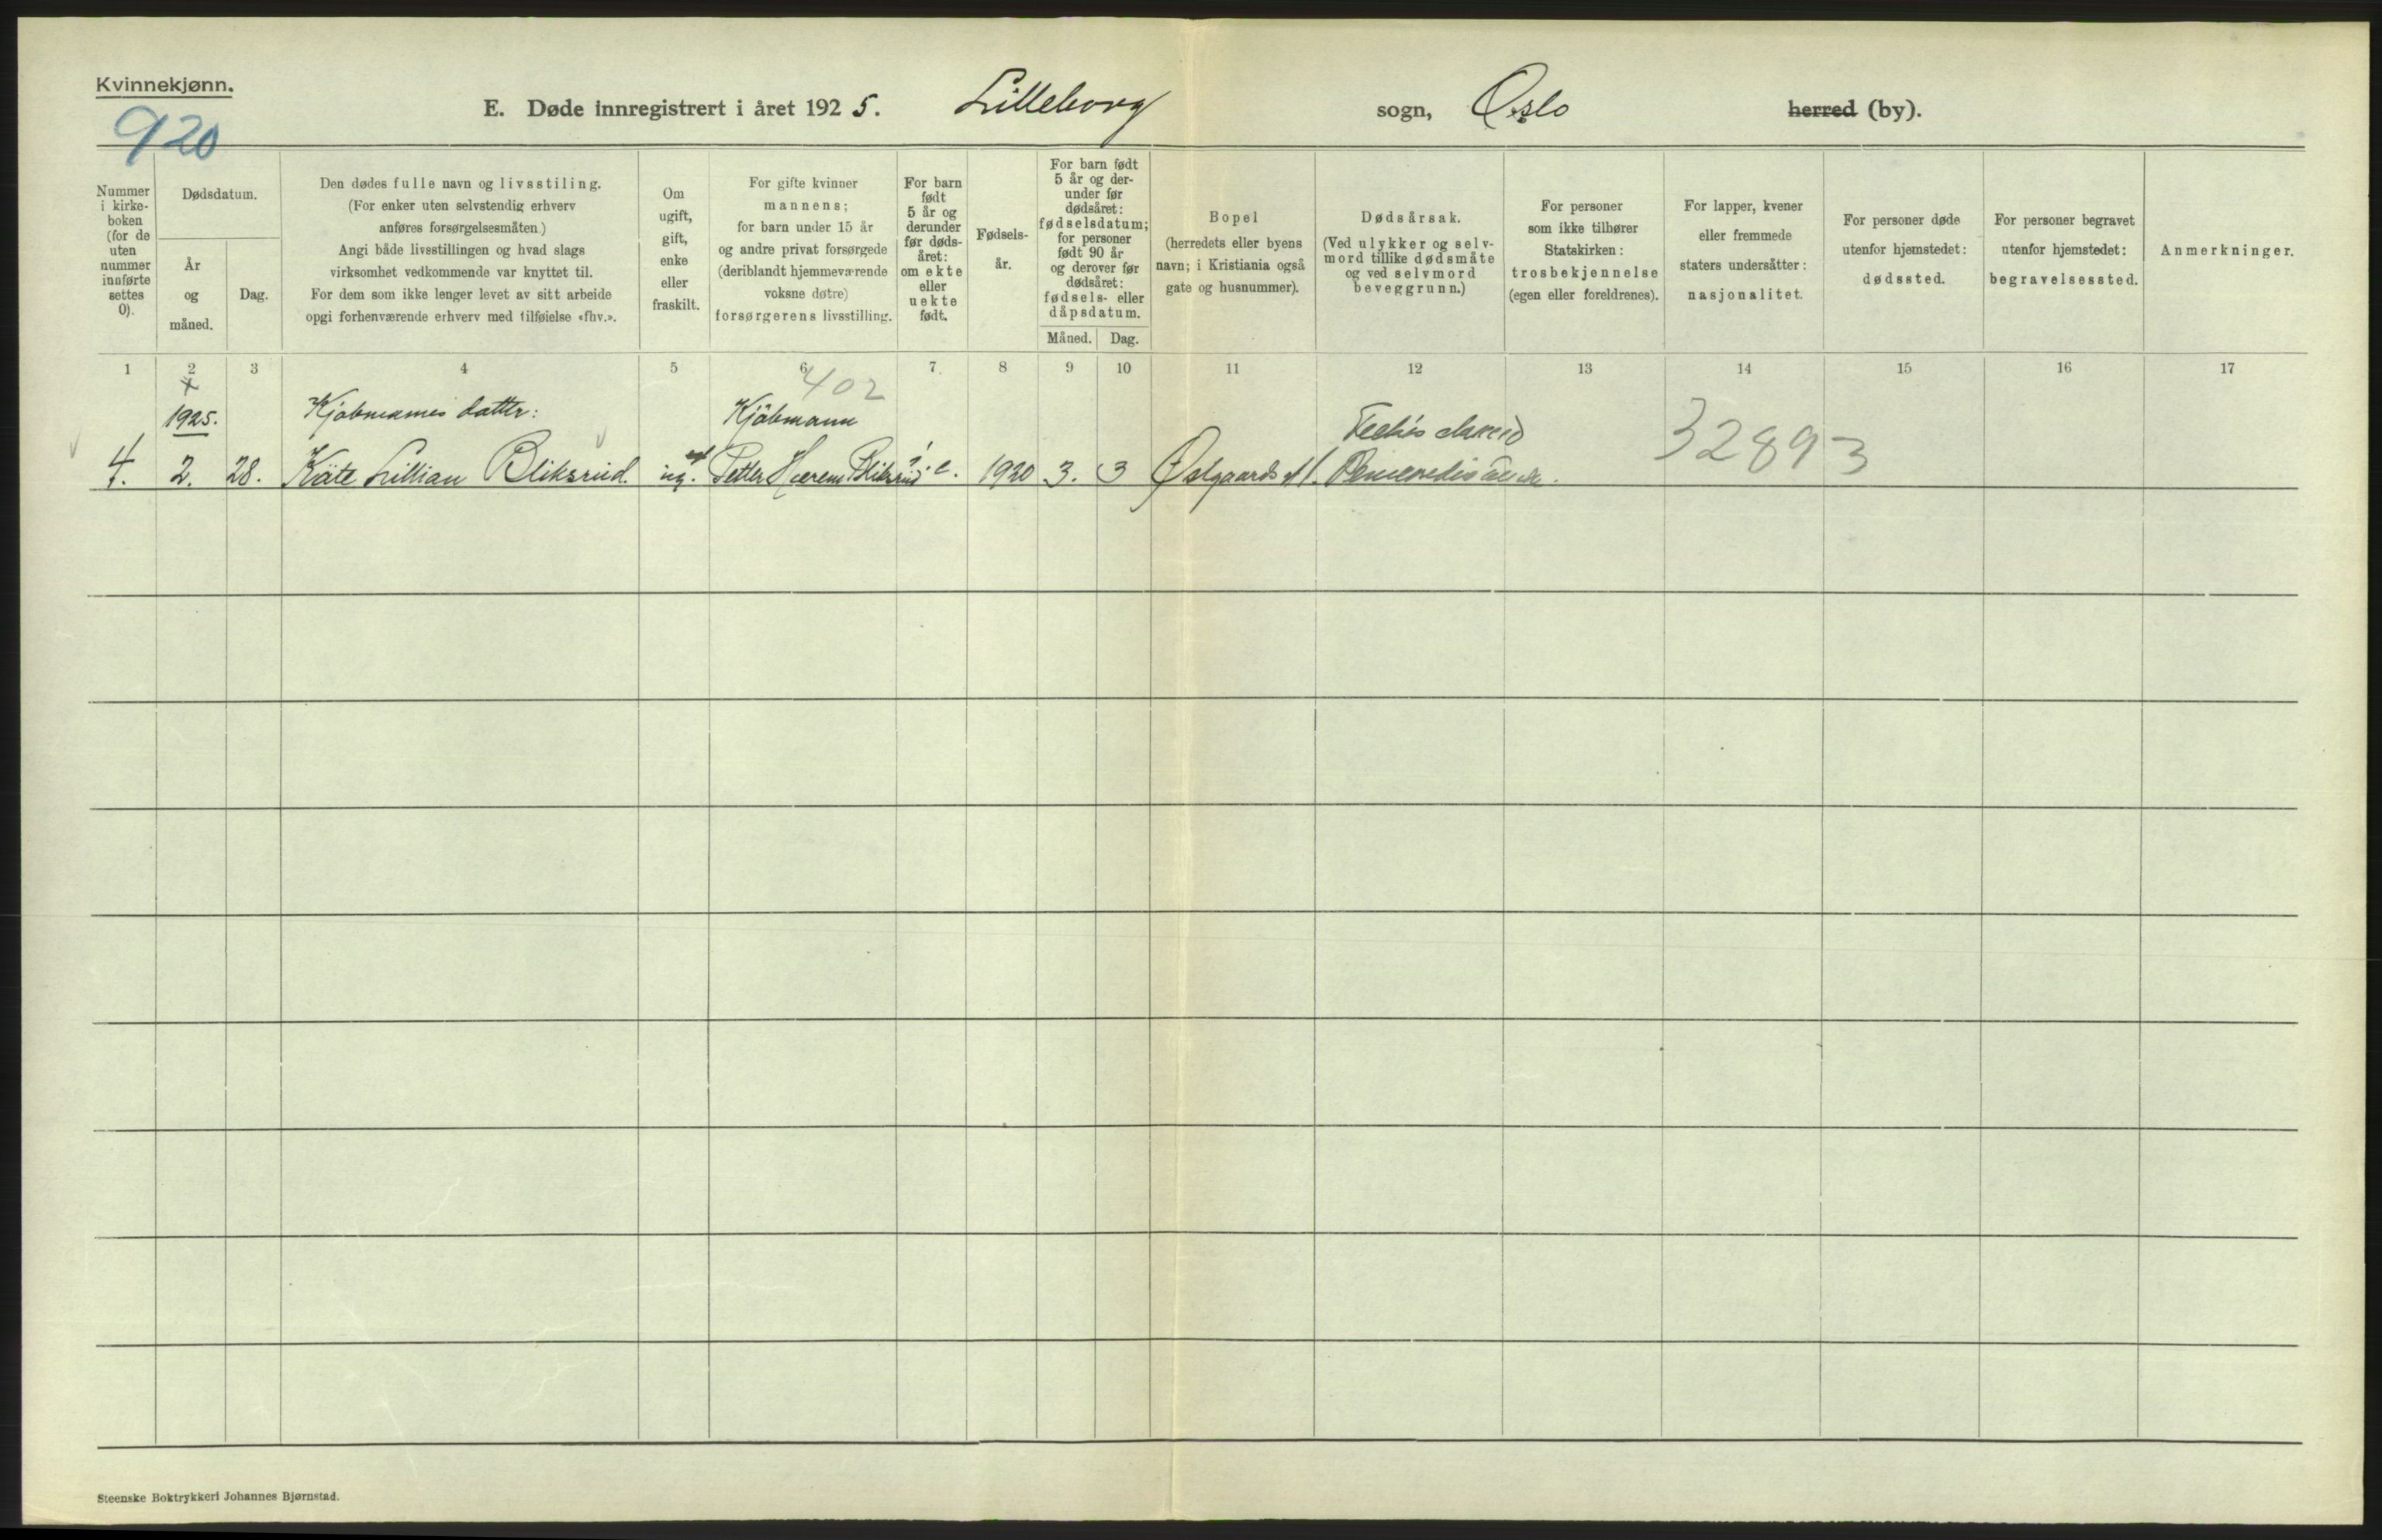 Kvinnekjønn.
920
E. Døde innregistrert i året 1925. Lilleborg sogn, Oslo herred (by).
Nummer i kirke-boken (for de uten nummer innførte settes 0).
Dødsdatum.
År og måned.
Dag.
Den dødes fulle navn og livsstiling.
(For enker uten selvstendig erhverv
anføres forsørgelsesmåten.)
Angi både livsstillingen og hvad slags
virksomhet vedkommende var knyttet til.
For dem som ikke lenger levet av sitt arbeide
opgi forhenværende erhverv med tilføielse «fhv.».
Om
ugift,
gift,
enke
eller
fraskilt.
For gifte kvinner
mannens;
for barn under 15 år
og andre privat forsørgede
(deriblandt hjemmeværende
voksne døtre)
forsørgerens livsstilling.
For barn
født
5 år og
derunder
før døds-
året:
om ekte
eller
uekte
født.
Fødsels-
år.
For barn født
5 år og der-
under før
dødsåret:
fødselsdatum;
for personer
født 90 år
og derover før
dødsåret:
fødsels- eller
dåpsdatum.
Måned. Dag.
Bopel
(herredets eller byens
navn; i Kristiania også
gate og husnummer).
Dødsårsak.
(Ved ulykker og selv-
mord tillike dødsmåte
og ved selvmord
beveggrunn.)
For personer
som ikke tilhører
Statskirken:
trosbekjennelse
(egen eller foreldrenes).
For lapper, kvener
eller fremmede
staters undersåtter:
nasjonalitet.
For personer døde
utenfor hjemstedet:
dødssted.
For personer begravet
utenfor hjemstedet:
begravelsessted.
Anmerkninger.
1 2 3 4 5 6 7. 8 9 10 11 12 13 14 15 16 17
402
1925. Kjøbmanns datter: Kjøbmann
4. 2. 28. Käte Lillian Bliksrud. ug. Petter Hærem Bliksrud e. 1920 3. 3 Østgaards
32893
Steenske Boktrykkeri Johannes Bjørnstad.